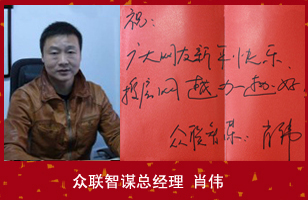 祝：
广大网友新年快乐
授信网越办越好
众联智谋：肖伟
众联智谋总经理 肖伟